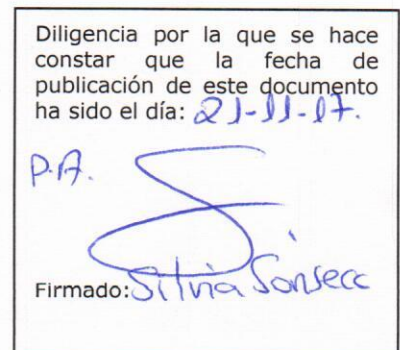 Diligencia por la que se hace
constar que la fecha de
publicación de este documento
ha sido el día: 21-11-17.
P.A.
Firmado: Silvia Fonseca